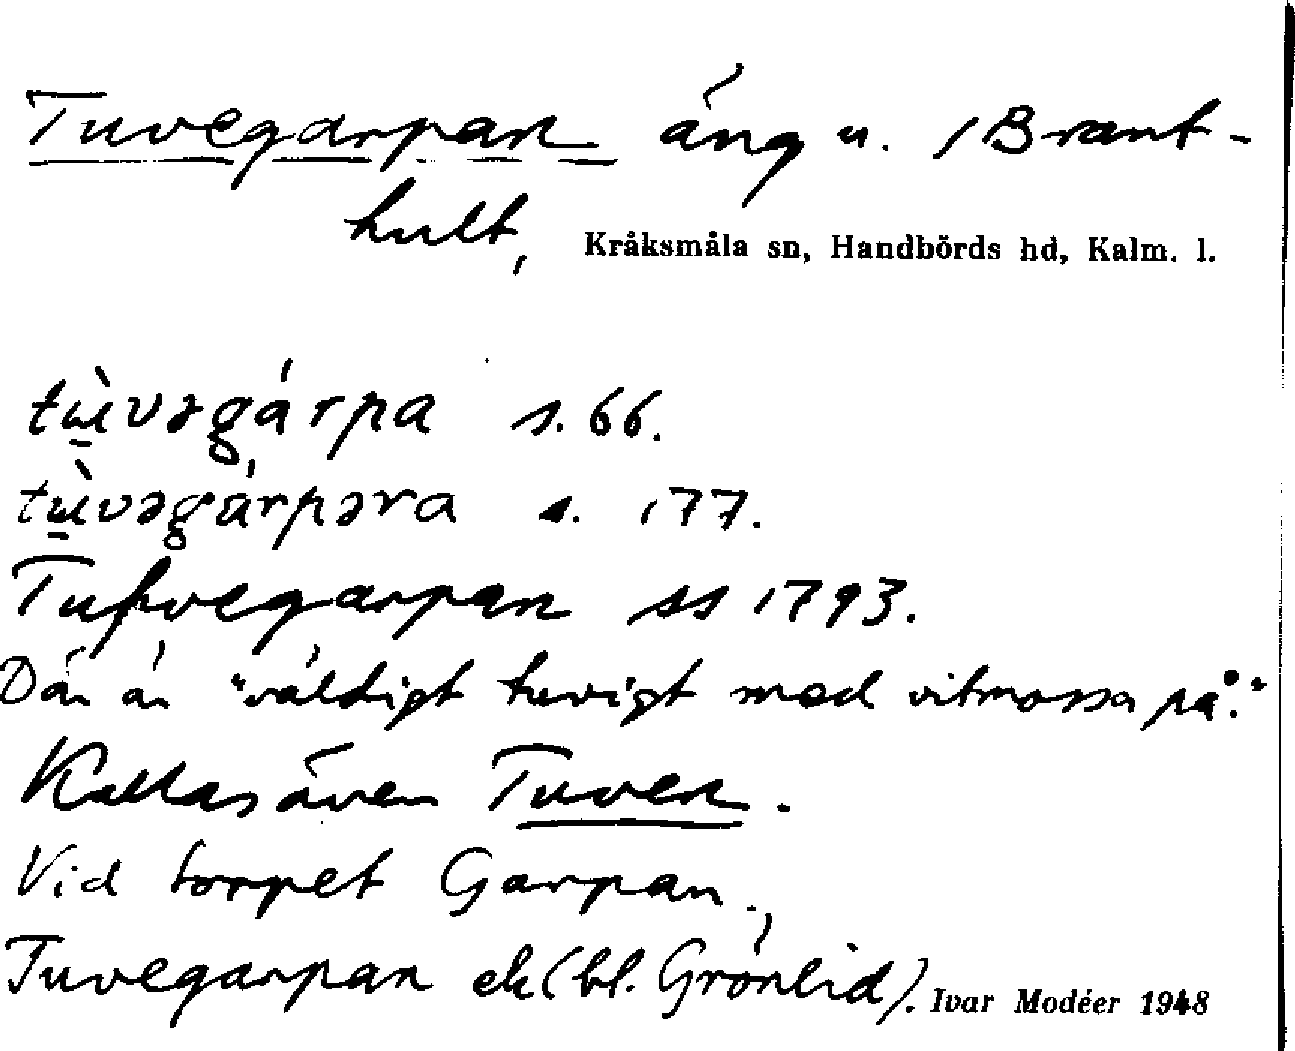 Tuvegarpan äng u. /Brant-
hult, Kråksmåla sn, Handbörds hd, Kalm. l.
tùvəgárpa s. 66.
tùvəgárpəra s. 177.
Tufvegarpan ss 1793.
Där är "väldigt tuvigt med vitmossa på."
Kallas även Tuven.
Vid torpet Garpan.
Tuvegarpan ek (bl. Grönlid). Ivar Modéer 1948